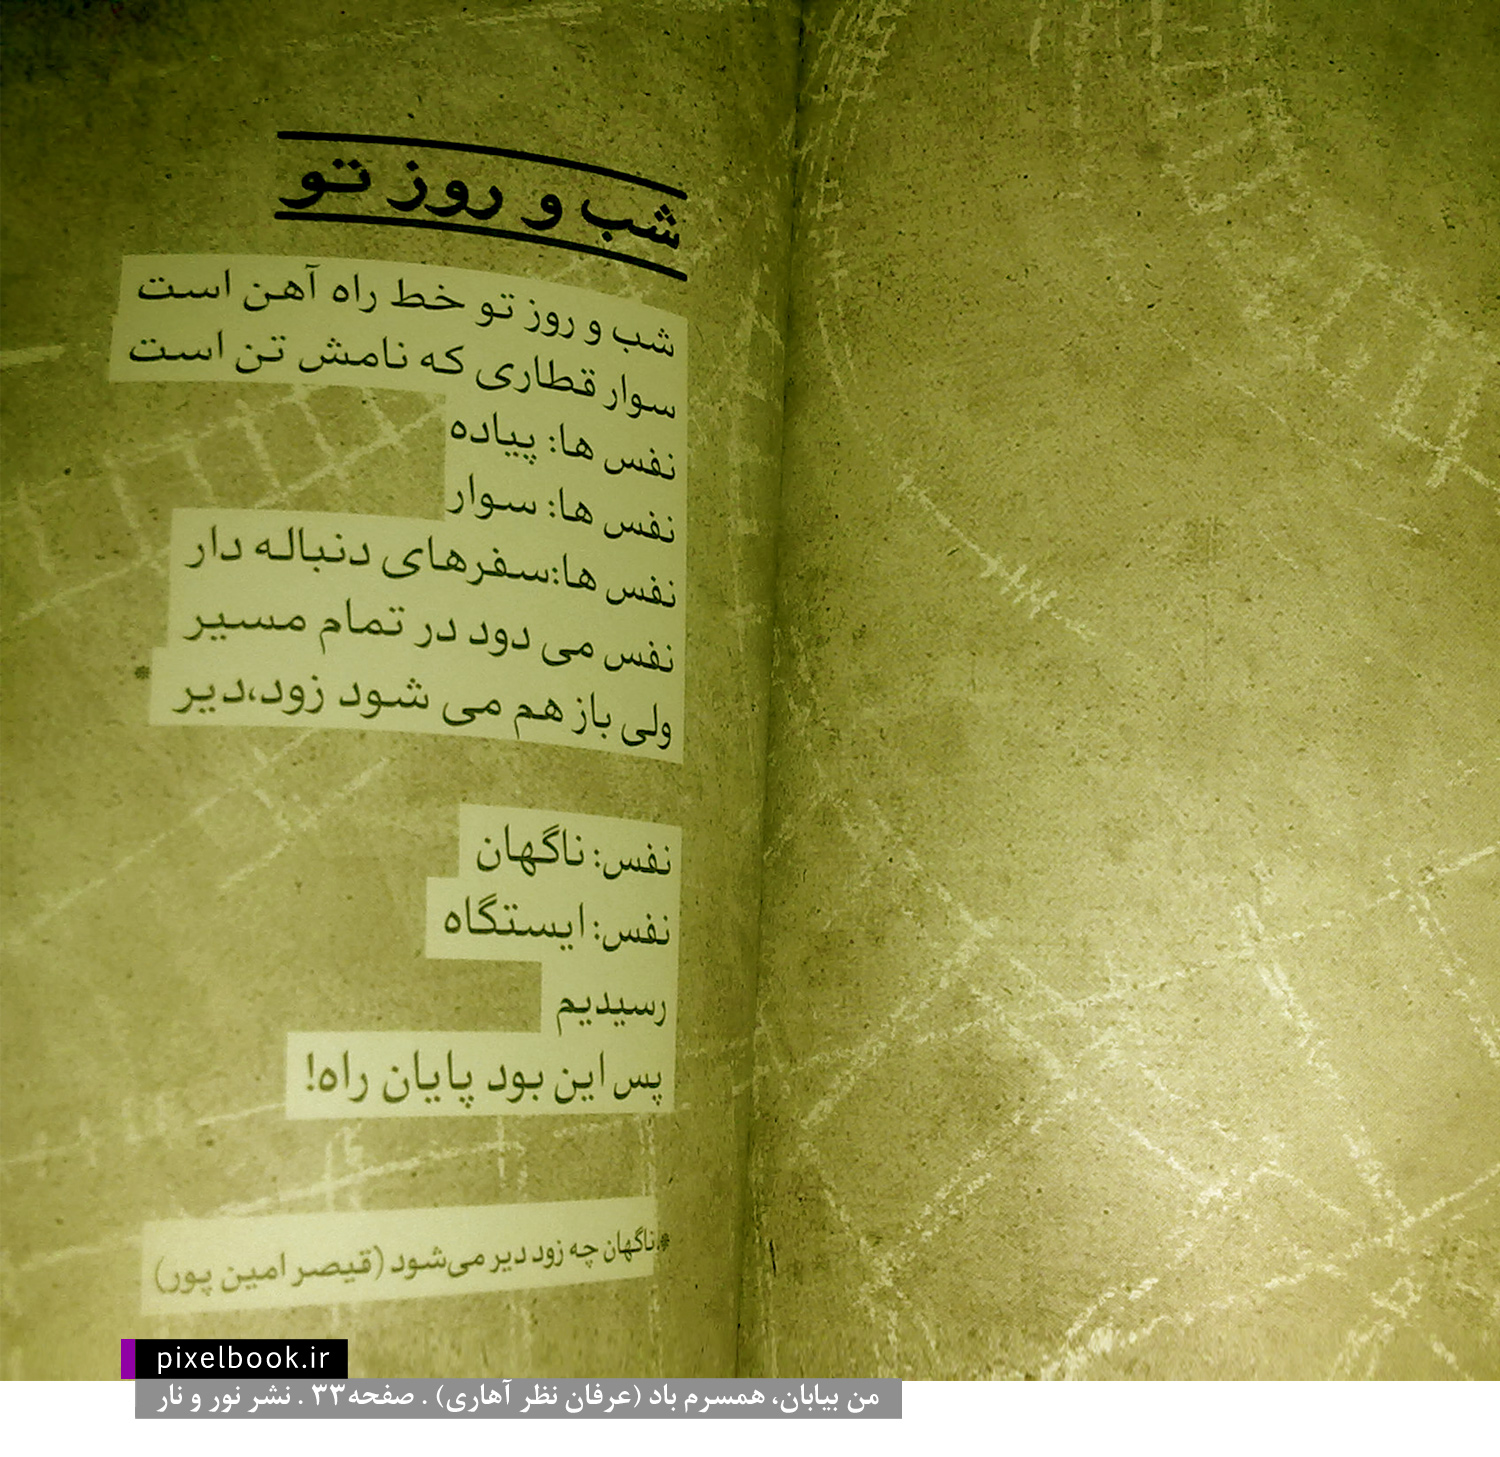 شب و روز تو
شب و روز تو خط راه آهن است
سوار قطاری که نامش تن است
نفس ها: پیاده
نفس ها: سوار
نفس ها:سفرهای دنباله دار
نفس می دود در تمام مسیر
ولی باز هم می شود زود،دیر *
نفس: ناگهان
نفس: ایستگاه
رسیدیم
پس این بود پایان راه!
*.ناگهان چه زود دیر می‌شود (قیصر امین پور)
pixelbook.ir
من بیابان، همسرم باد (عرفان نظر آهاری) . صفحه۳۳ . نشر نور و نار